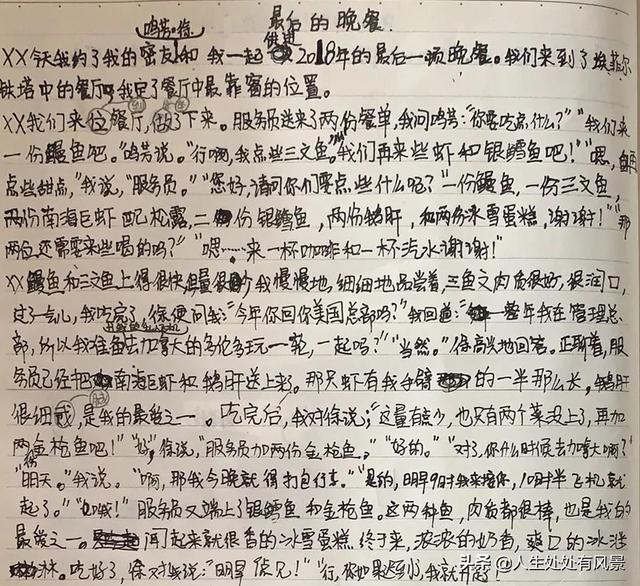 最后的晚餐
鸣芳·徐
XX今天我约了我的密友和我一起共进2018年的最后一顿晚餐。我们来到了埃菲尔
铁塔中的餐厅,我定了餐厅中最靠窗的位置。
XX我们来位餐厅,了下来。服务员送来了两份餐单,我问鸣芳:"你要吃点什么?""我们来
一份鳗鱼吧。"鸣芳说。"行啊,我点些三文鱼。""我们再来些虾和银鳕鱼吧!""嗯,再
点些甜点,"我说,"服务员。""您好,请问你们要点些什么呢?""一份鳗鱼,一份三文鱼,
两份南海巨虾配松露,二份银鳕鱼,两份鹅肝,和两份冰雪蛋糕,谢谢!""那
两位还需要来些喝的吗?""嗯……来一杯咖啡和一杯汽水谢谢!"
XX鳗鱼和三文鱼上得很快但量很少我慢慢地,细细地品尝着,三鱼文肉质很好,很润口,
过了一会儿,我吃完了,徐便问我:"今年你回你美国总部吗?"我回道:"若年我在管理总
部,所以我准备去加拿大的多伦多玩一轮,一起吗?""当然。"徐高兴地回答。正聊着,服
务员已经把南海巨虾和鹅肝送上来了。那只虾有我手臂的一半那么长,鹅肝
很细,是我的最爱之一。吃完后,我对徐说:"这量有点少,也只有两个菜没上了,再加
两金枪鱼吧!""好,"徐说,"服务员加两份金枪鱼。""好的。""对了,你什么时候去加拿大啊?"
徐
"明天。"我说。"啊,那我今晚就得打包行李。""是的,明早9时我来接你,10时半飞机就
起了。""如哦!"服务员又端上了银鳕鱼和金枪鱼。这两种鱼,肉质都很棒,也是我的
最爱之一。闻起来就很香的冰雪蛋糕终于来,浓浓的奶香,爽口的冰淇
淋。吃好了,徐对我说:"明早候见!""行,你如果迟到,我就
头条 @人生处处有风景